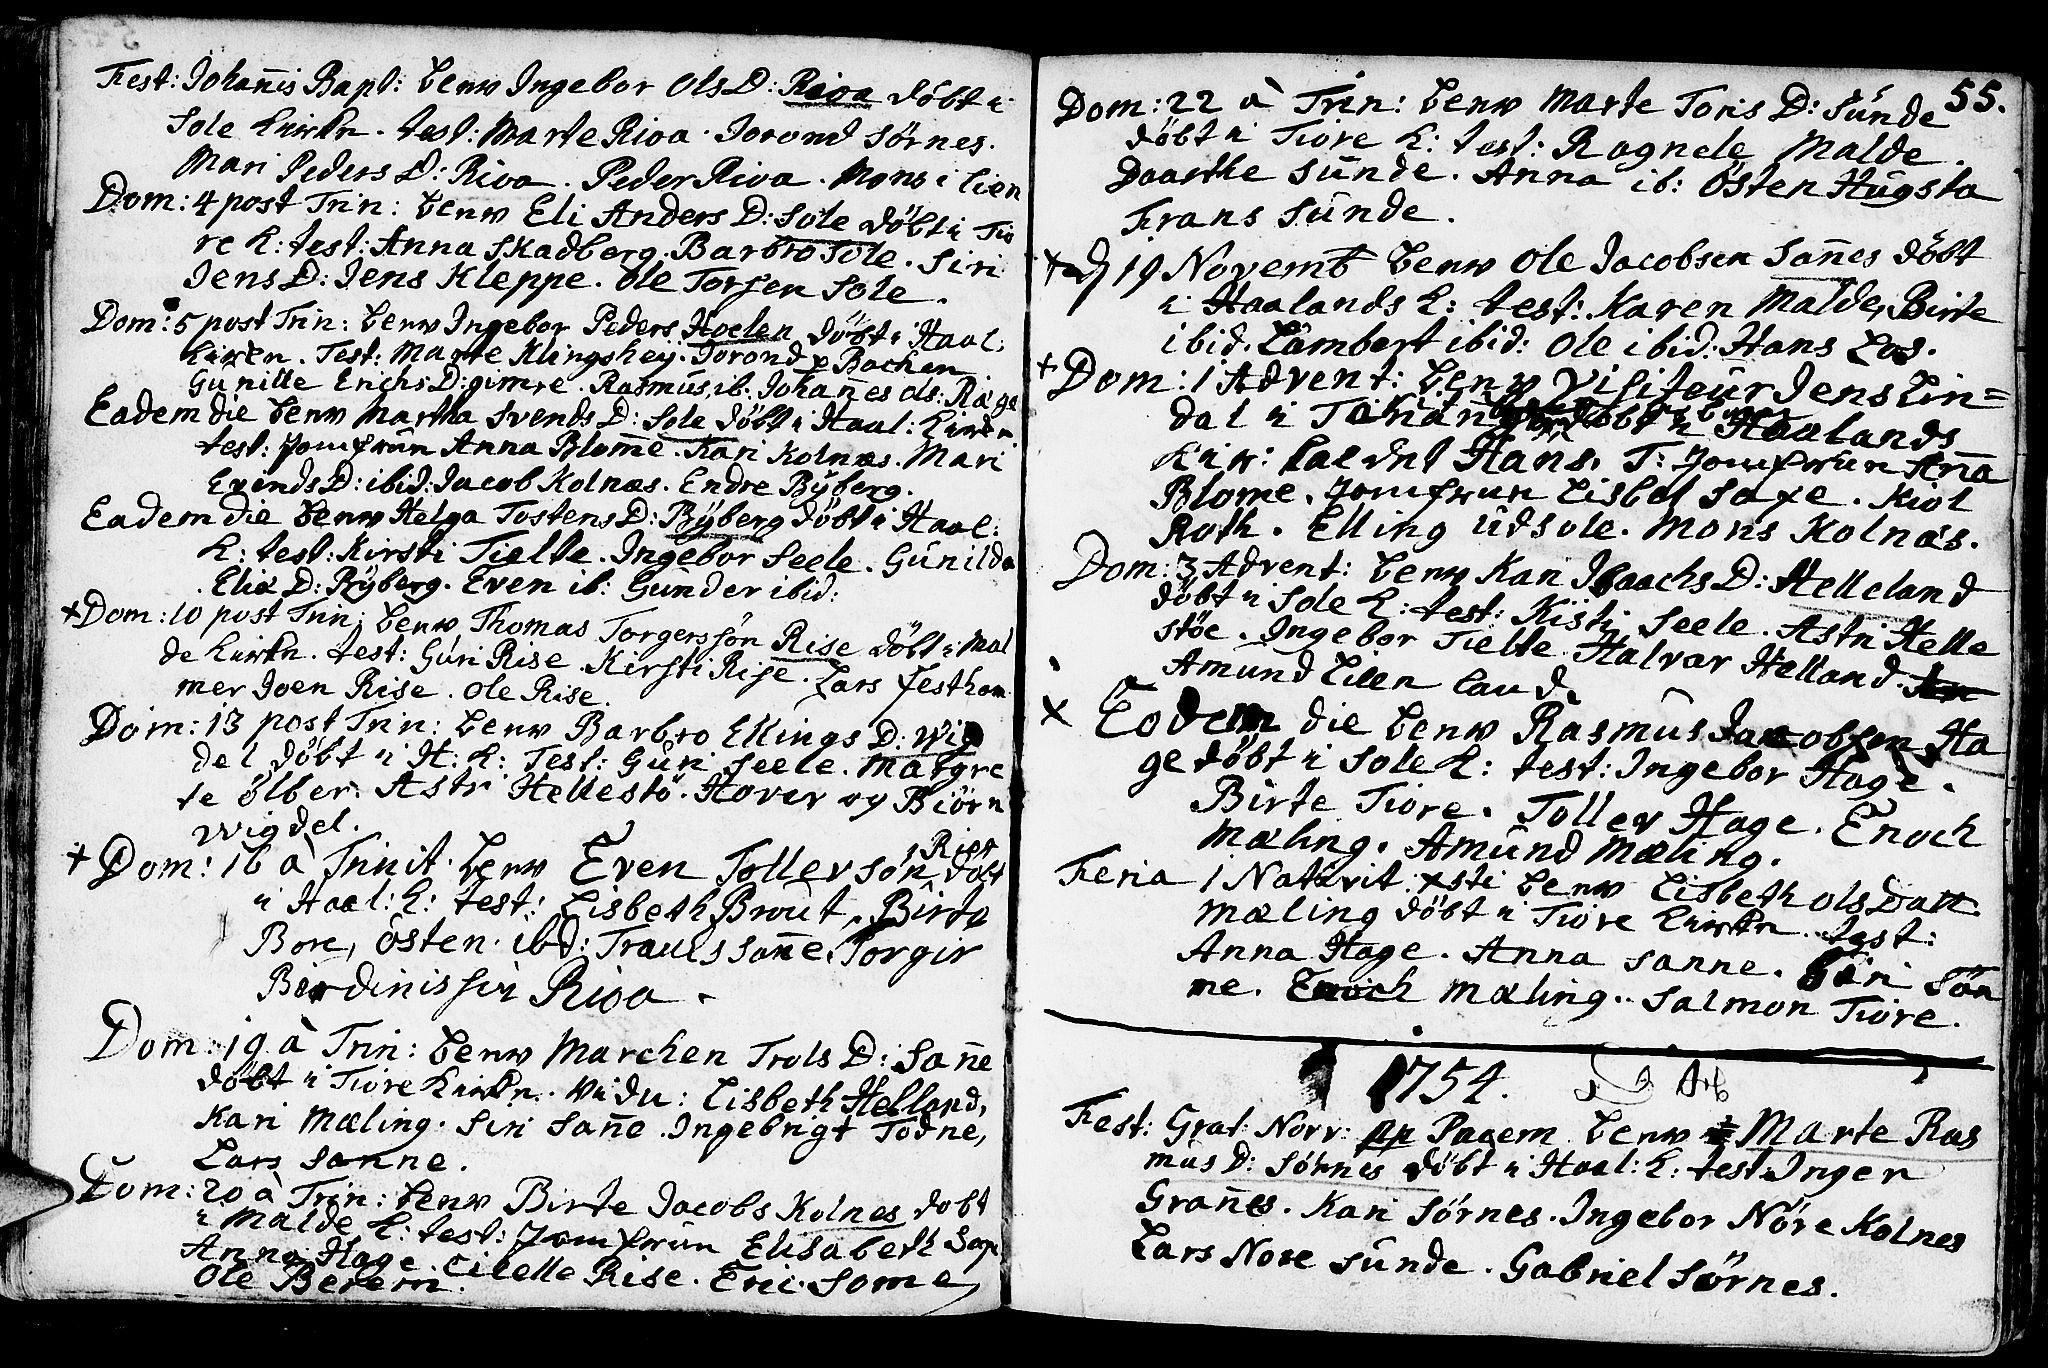 Fest: Johañis Bapt: bem Ingebor OlsD: Riva döbt i
Sole Kirkn. test: Marte Riva. Jorond Sörnes.
Mari Peders D: Riva. Peder Riva. Mons i Lien
Dom: 4 post Trin: bem Eli Anders D: Sole döbt i Tio
re K: test: Anna Skadberg. Barbro Sole. Siri
Jens D: Jens Kleppe. Ole Torsen Sole.
Dom: 5 post Trin: bem Ingebor Peders Hoelen döbt i Haal:
Kirken. Test: Marte Klingshey. Jorond p Bachen
Gunille Erichs D: gimre. Rasmus, ib. Johañes ols: Ræge
Eadem die bem Martha Svends D: Sole döbt i Haal: Kirkn
test: Jomfrun Anna Blom̃e. Kari Kolnæs. Mari
Evinds D: ibid: Jacob Kolnæs. Endre Byberg.
Eadem die bem Helga Tostens D: Byberg döbt i Haal:
K: test: Kirsti Tielte. Ingebor Seele. Gunilda
Eliæ D: Byberg. Even ib: Gunder ibid:
+ Dom: 10 post Trin: bem Thomas Torgerssön Rise döbt i Mal
de Kirkn. test: Guri Rise. Kirsti Rise. Lars Jestham
mer Joen Rise. Ole Rise.
Dom: 13 post Trin: bem Barbro Ellings D: Wig
del döbt i H: K: Test: Guri Seele. Margre
te ölber. Astri Hellestö. Hover og Biörn
Wigdel.
+ Dom: 16 à Trinit. bem Even Tollersön Rien döbt
i Haal: K: test: Lisbeth Brout, Birta
Bore, Östen ibd: Trauls sañe. Torgir
Riva.
Dom: 19 à Trin: bem Marchen Trols D: Sañe
döbt i Tiore Kirkn. Vidu: Lisbeth Helland,
Kari Mæling. Siri Sañe. Ingebrigt Todne,
Lars Sanne.
Dom: 20 à Trin: bem Birte Jacobs Kolnes dobt
i Malde K: test: Jomfrun Elisabeth Saxe
Anna Hage. Cicelle Rise. Eric Some,
Ole Berem.
55.
Dom: 22 à Trin: bem Marte Toris D: Sunde
döbt i Tiore K: test: Ragnele Malde.
Daarthe Sunde. Anna ib: Östen Hugsta
Frans Sunde.
+ d 19 Novemb bem Ole Jacobsen Sañes döbt
i Haalands K: test: Karen Malde, Birte
ibid. Lambert ibid: Ole ibid. Hans Los.
+ Dom: 1 Advent: bem Visiteur Jens Lin=
dal i döbt i Haalands
Kirk: kaldet Hans. T: Jomfrun Aña
Blome. Jomfrun Lisbet Saxe. Kiol
Roth. Elling Udsole. Mons Kolnæs.
Dom: 3 Advent: bem Kari Isaachs D: Helleland
döbt i Sole K: test: Kisti Seele. Astri Helle
stöe. Ingebor Tielte. Halvar Helland.
Amund Eilen laud.
x Eodem die bem Rasmus Jacobsen Ha
ge döbt i Sole K: test: Ingebor Hage.
Birte Tiore. Tollev Hage. Enoch
Mæling. Amund Mæling.
Feria 1 Nativit. xsti bem Lisbeth ols Datt
Mæling döbt i Tiore Kirkn. test:
Anna Hage. Anna Sanne. Siri Sön
me. Enoch Mæling.. Salmon Tiore.
1754.
Fest: Grat: Norv: pp Pacem bem Marte Ras
mus D: Sörnes döbt i Haal: K: test Inger
Grañes. Kari Sörnes. Ingebor Nöre Kolnes
Lars Nore Sunde. Gabriel Sörnes.